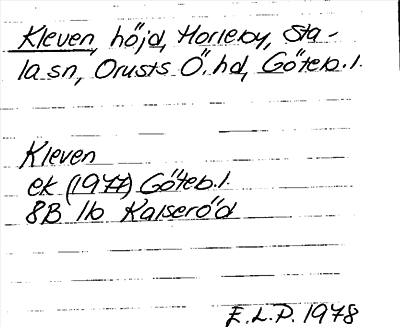 Kleven, höjd, Horleby, Sta-
la sn, Orusts Ö. hd, Göteb. l.
Kleven
ek (1977) Göteb. l.
8B 1b Kalseröd
E.L.P. 1978